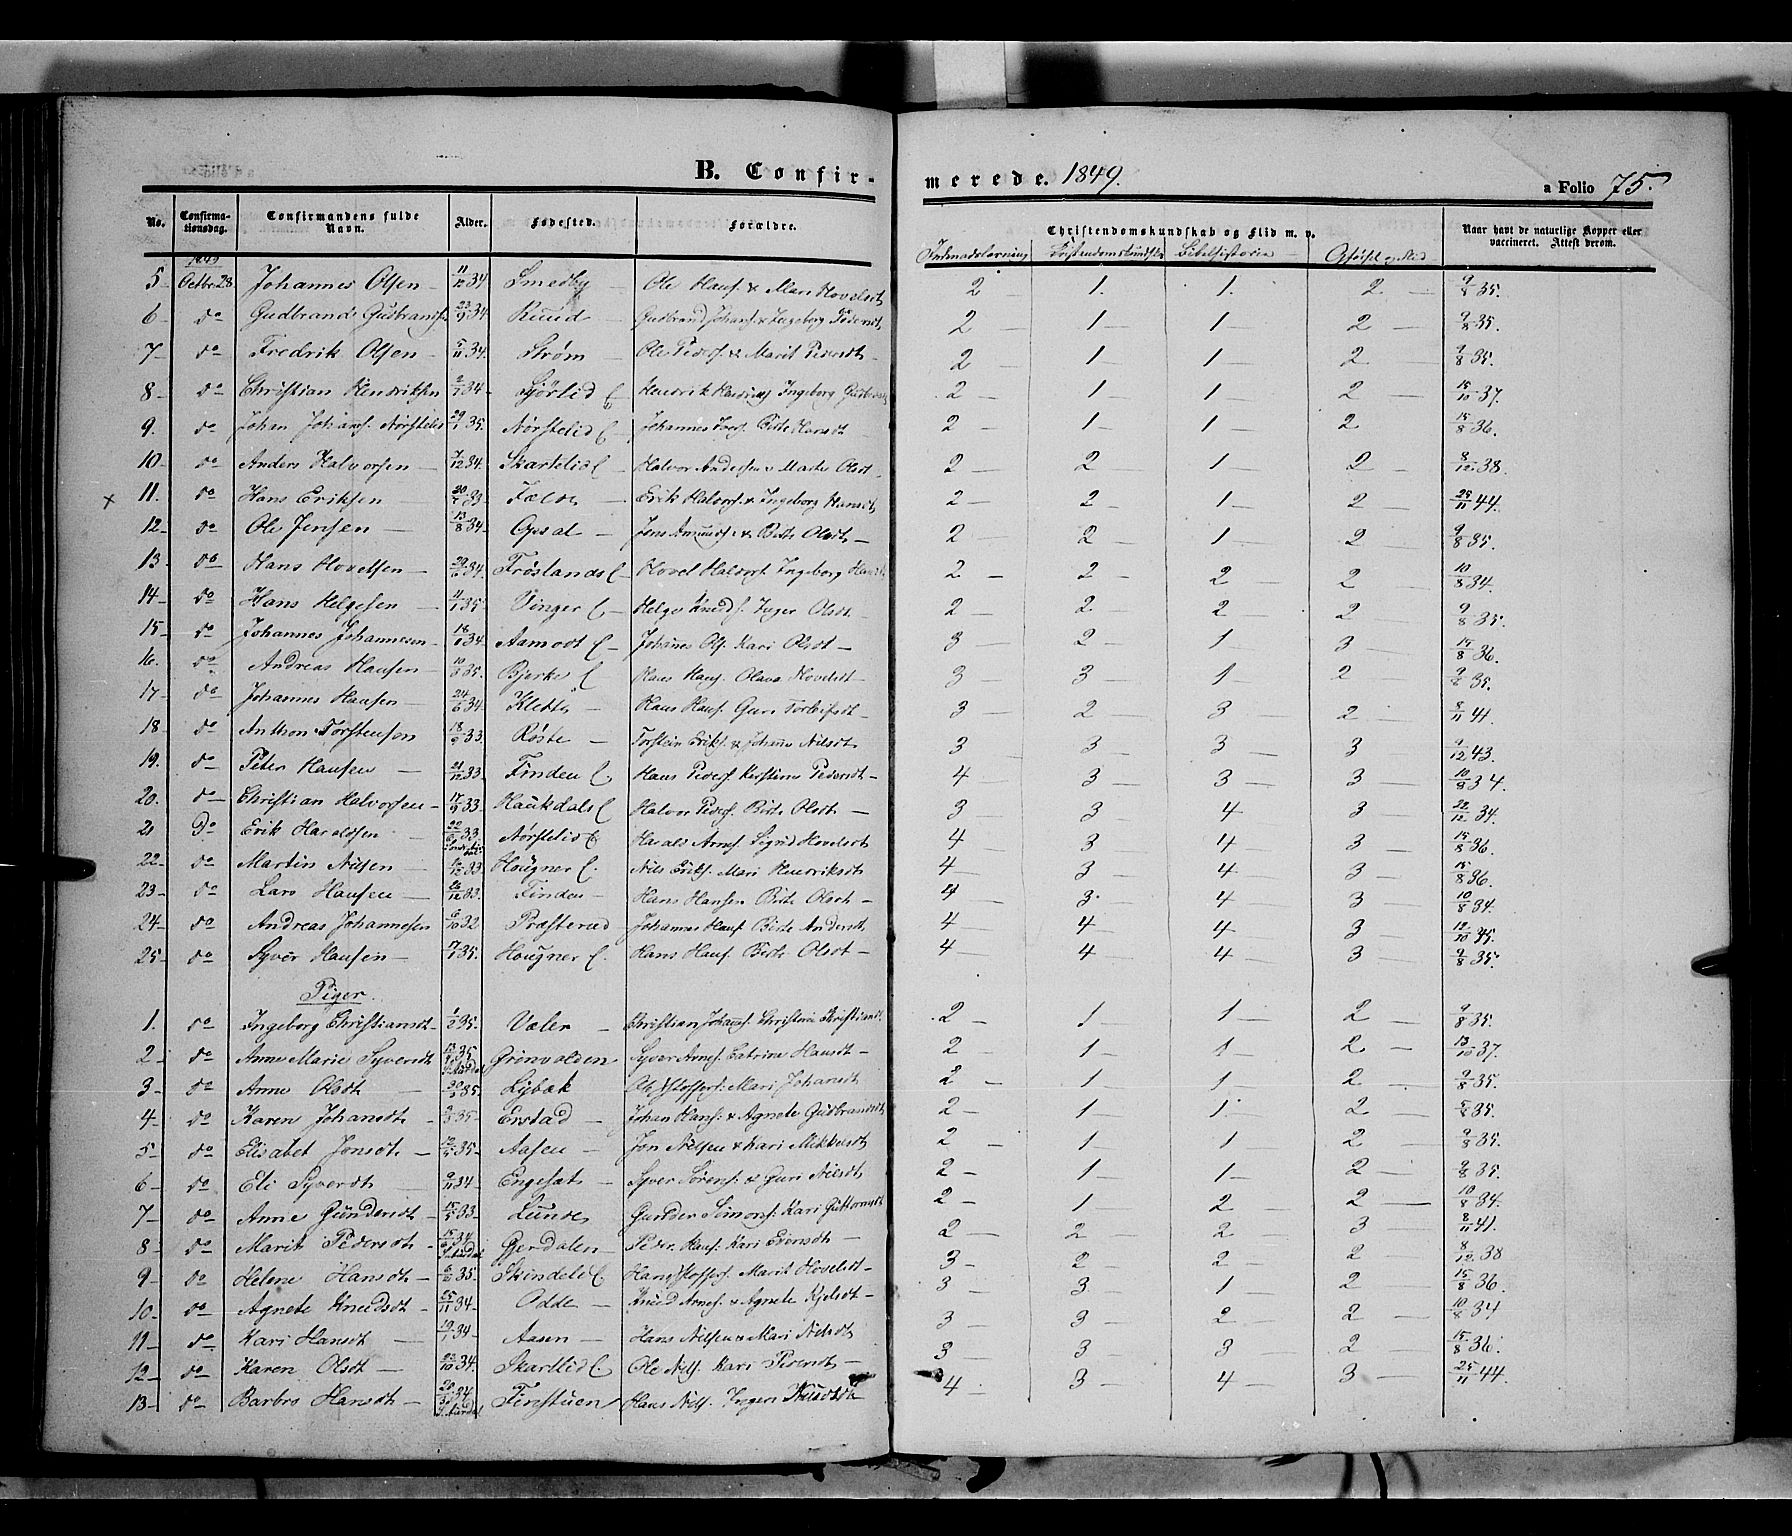 B. Confir- merede. 1849. a Folio 75.
No. Confirma- Confirmandens fulde Alder. Fødested. Forældre. Christendomskundskab og Flid m. v. Naar havt de naturlige Kopper eller
tionsdag. Navn. vaccineret. Attest derom.
Christendomskundsk. Bibelhistorie
1849
5 Octbr 28 Johannes Olsen 11/10 34 Smedby Ole Hans. & Mari Hovelsdt 2 1. 1. 2 9/8 35.
6 do Gudbrand Gudbrands. 23/9 34 Ruud Gudbrand Johans. & Ingeborg Pedersdt 2 1 1 2 9/8 35.
7 do Fredrik Olsen 5/11 34. Strøm Ole Peders. & Marit Pedersdt 2 1 1 2 9/8 35.
8 do Christian Hendriksen 2/7 34 Hendrik Ingeborg 2 1 1 2 15/10 37.
9. do Johan Johans. 29/1 35. Nørstelid C Johannes Birte Hansdt 2 1 1 2 15/8 36.
10 do Anders Halvorsen 7/12 34. Skartelid C Halvor Andersen & Marte Olsdt 2 2 1 2 8/12 38.
x 11. do Hans Eriksen 33 Erik Halvors. & Ingeborg Hansdt 2 2 1 2 25/11 44.
12 do Ole Jensen 13/8 34. Opsal Jens Amunds. & Birte Olsdt 2 2 1 2 9/8 35.
13 do Hans Hovelsen 29/6 34. Frøslands C Hovel Halvors. Ingeborg 2 2 2 2 10/8 34.
14 do Hans Helgesen 35 Vinger C Helge Knuds. Inger Olsdt 2 2 2 2 9/8 35.
15 do Johannes Johannesen 34 Aamodt C Johanes Ols. Kari Olsdt 3 2 1 3 15/8 36.
16. do Andreas Hansen 35. Bjerke C Hans Hans. Olava Hovelsdt 3 3 1 2 9/8 35.
17 do Johannes Hansen 24/6 34 Klette Hans Hans. Guri Torleifsdt 3 2 3 2 8/11 41.
18 do Anthon Torstensen 18/9 33. Røste Torstein Eriks. & Johane Nilsdt 3 3 3 3 9/12 43.
19. do Peter Hansen 21/12 33. Finden C Hans Peders. Kerstine Pedersdt 4 3 3 3 34.
20. do Christian Halvorsen 17/9 33. Haukdals C Halvor Peders. Birte Olsdt 3 3 4 3 22/12 34.
21 Do Erik Haraldsen 22/6 33. Nørstelid C Harald Arnes. Sigrid Hovelsdt 4 3 4 3 15/8 36.
22 do Martin Nilsen 33. Hougner C. Nils Eriks. Mari Henriksdt 4 3 4 3 15/8 36.
23 do Lars Hansen 26/12 33. Finden Hans Hansen Birte Olsdt 4 3 4 3 10/8 34.
24 do Andreas Johannesen 6/10 32 Præsterud Johannes Hans. Birte Andersdt 4 4 4 3 12/10 35.
25 do Syver Hansen 35. Hougner C. Hans Hans. Birte Olsdt 4 4 4 3 9/8 35.
Piger.
1. do Ingeborg Christiansdt 1/2 35. Valer Christian Johans. Christine Christiansdt. 2 1 1 2 9/8 35.
2 do Anne Marie Syversdt 35 Grenvolden Syver Arnes. Catrine Hansdt 2 1 1 2 13/10 37.
3 do Anne Olsdt 35. Lybæk Ole Mari Johansdt 2 1 1 2 9/8 35.
4 do Karen Johansdt 35 Erstad Johan Hans. & Agnete Gudbrandsdt 2 1 1 2 5/8 35.
5 do Elisabet Jonsdt 35 Aasen Jon Nilsen & Kari Mikkelsdt 2 1 1 2 9/8 35.
6 do Eli Syversdt 2/11 34 Engesæt Syver Sørens. & Guri Nilsdt 2 1 1 2 9/8 35.
7 do Anne Gundersdt 33 Lunde Gunder Simons. Kari Guttormsdt 2 1 2 2 10/8 34.
8 do Marit Pedersdt 34 Gjerdalen Peder Hans. Kari Evensdt 2 2 2 3 8/11 41.
9 do Helene Hansdt 35. Skindelid C Hans Marit Hovelsdt 3 2 2 2 8/12 38
10 do Agnete Knudsdt 25/11 34 Odde Knud Arnes. & Agnete Kjelsdt 3 3 1 2 15/8 36.
11 do Kari Hansdt 19/1 34 Aasen Hans Nilsen & Mari Nilsdt 3 3 2 2 10/8 34
12 do Karen Olsdt 23/10 34. Skartlid C. Ole Nils. Kari Pedersdt 3 3 3 2 15/8 36.
13 do Barbro Hansdt 34 Finstuen Hans Nils. Ingeri Knudsdt 4 3 4 3 25/11 44.